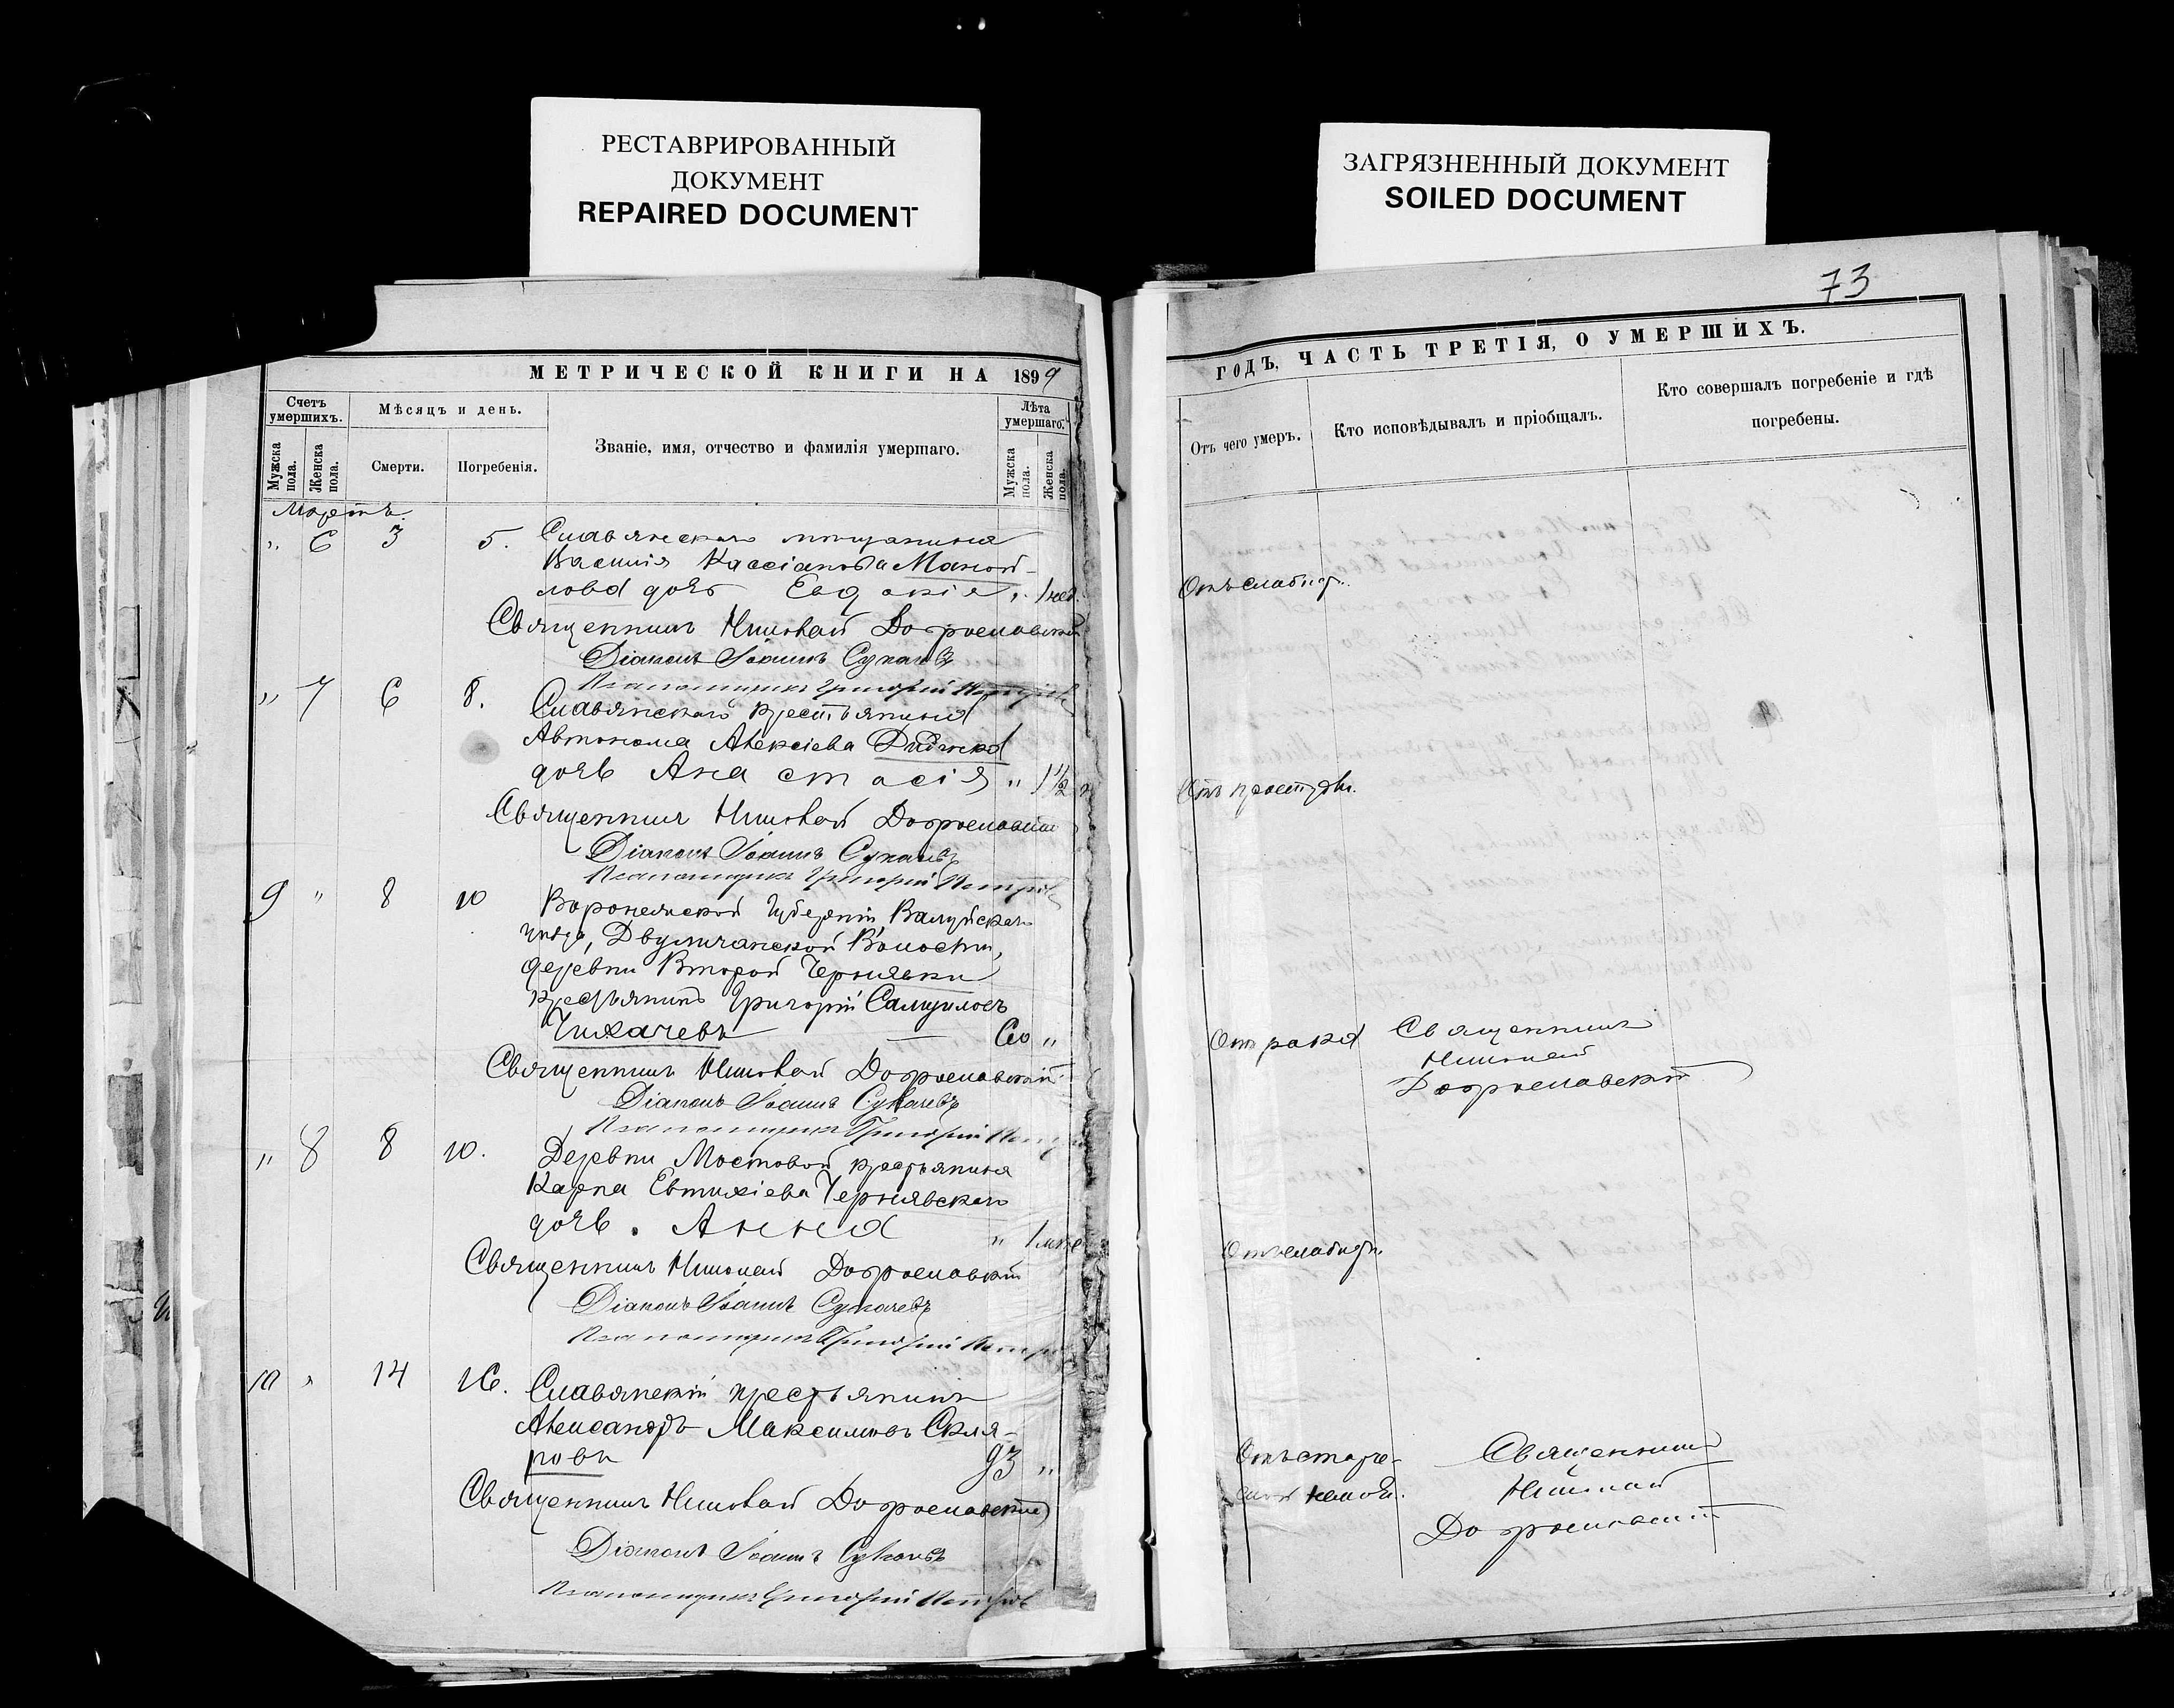 РЕСТАВРИРОВАННЫЙ
ДОКУМЕНТ
REPAIRED DOCUMENT
ЗАГРЯЗНЕННЫЙ ДОКУМЕНТ
SOILED DOCUMENT
МЕТРИЧЕСКОЙ КНИГИ НА 1899
Счетъ умершихъ.
Мужска пола.
Женска пола.
Мѣсяцъ и день.
Смерти.
Погребенія.
Званіе, имя, отчество и фамилія умершаго.
Лѣта умершаго.
Мужска пола.
Женска пола.
Мартъ
„ 6 3 5. Славянскаго мѣщанина
Василія Кассіанова Маной-
лова дочь Евдокія „ 1 нед.
Священникъ Николай Доброславскій
Діаконъ Іоаннъ Сукачевъ
Псаломщикъ Григорій Петровъ
„ 7 6 8. Славянскаго крестьянина
Автонома Алексіева Дидэнка
дочь Анастасія „ 1 1/2
Священникъ Николай Доброславскій
Діаконъ Іоаннъ Сукачевъ
Псаломщикъ Григорій Петровъ
9 „ 8 10 Воронежской Губерніи, Валуйскаго
уѣзда, Двулучанской Волости,
деревни Второй Чернявки
крестьянинъ Григорій Самуиловъ
Чихачевъ — 60 „
Священникъ Николай Доброславскій
Діаконъ Іоаннъ Сукачевъ
Псаломщикъ Григорій Петровъ
„ 8 8 10. Деревни Мостовой крестьянина
Карпа Евтихіева Чернявскаго
дочь Анна „ 1
Священникъ Николай Доброславскій
Діаконъ Іоаннъ Сукачевъ
Псаломщикъ Григорій Петровъ
10 „ 14 16. Славянскій крестьянинъ
Александръ Максимовъ Скля-
ровъ 93 „
Священникъ Николай Доброславскій
Діаконъ Іоаннъ Сукачевъ
Псаломщикъ Григорій Петровъ
73
ГОДЪ, ЧАСТЬ ТРЕТІЯ, О УМЕРШИХЪ.
Отъ чего умеръ.
Кто исповѣдывалъ и пріобщалъ.
Кто совершалъ погребеніе и гдѣ
погребены.
Отъ слабост.
Отъ простуды.
Отъ рака Священникъ
Николай
Доброславскій
Отъ слабост.
Отъ старче- Священникъ
Николай
Доброславскій